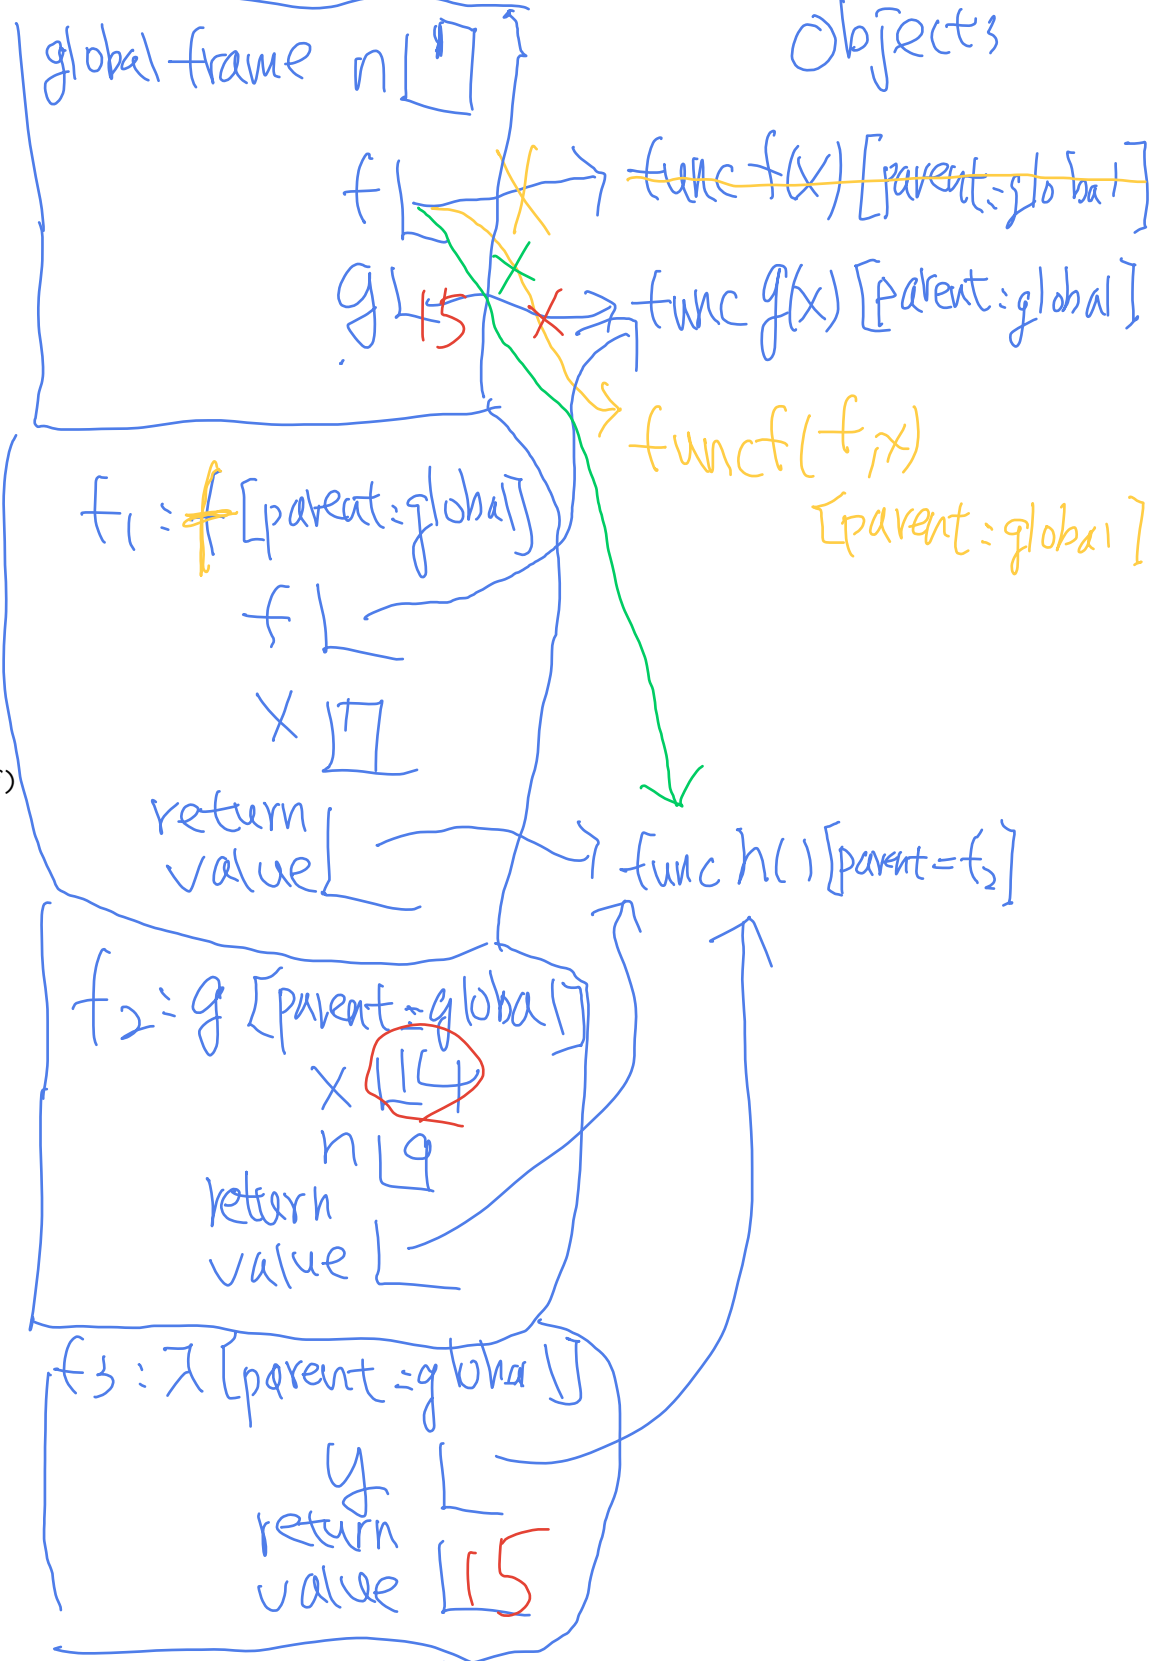 Objects
global frame n 7
f func f(x) [parent:global]
g 15 func g(x) [parent:global]
func f(f,x)
[parent:global]
f1: f [parent:global]
f
x 7
)
return
value func h() [parent=f2]
f2: g [parent:global]
x 14
n 9
return
value
f3: λ [parent:global]
y
return
value 15